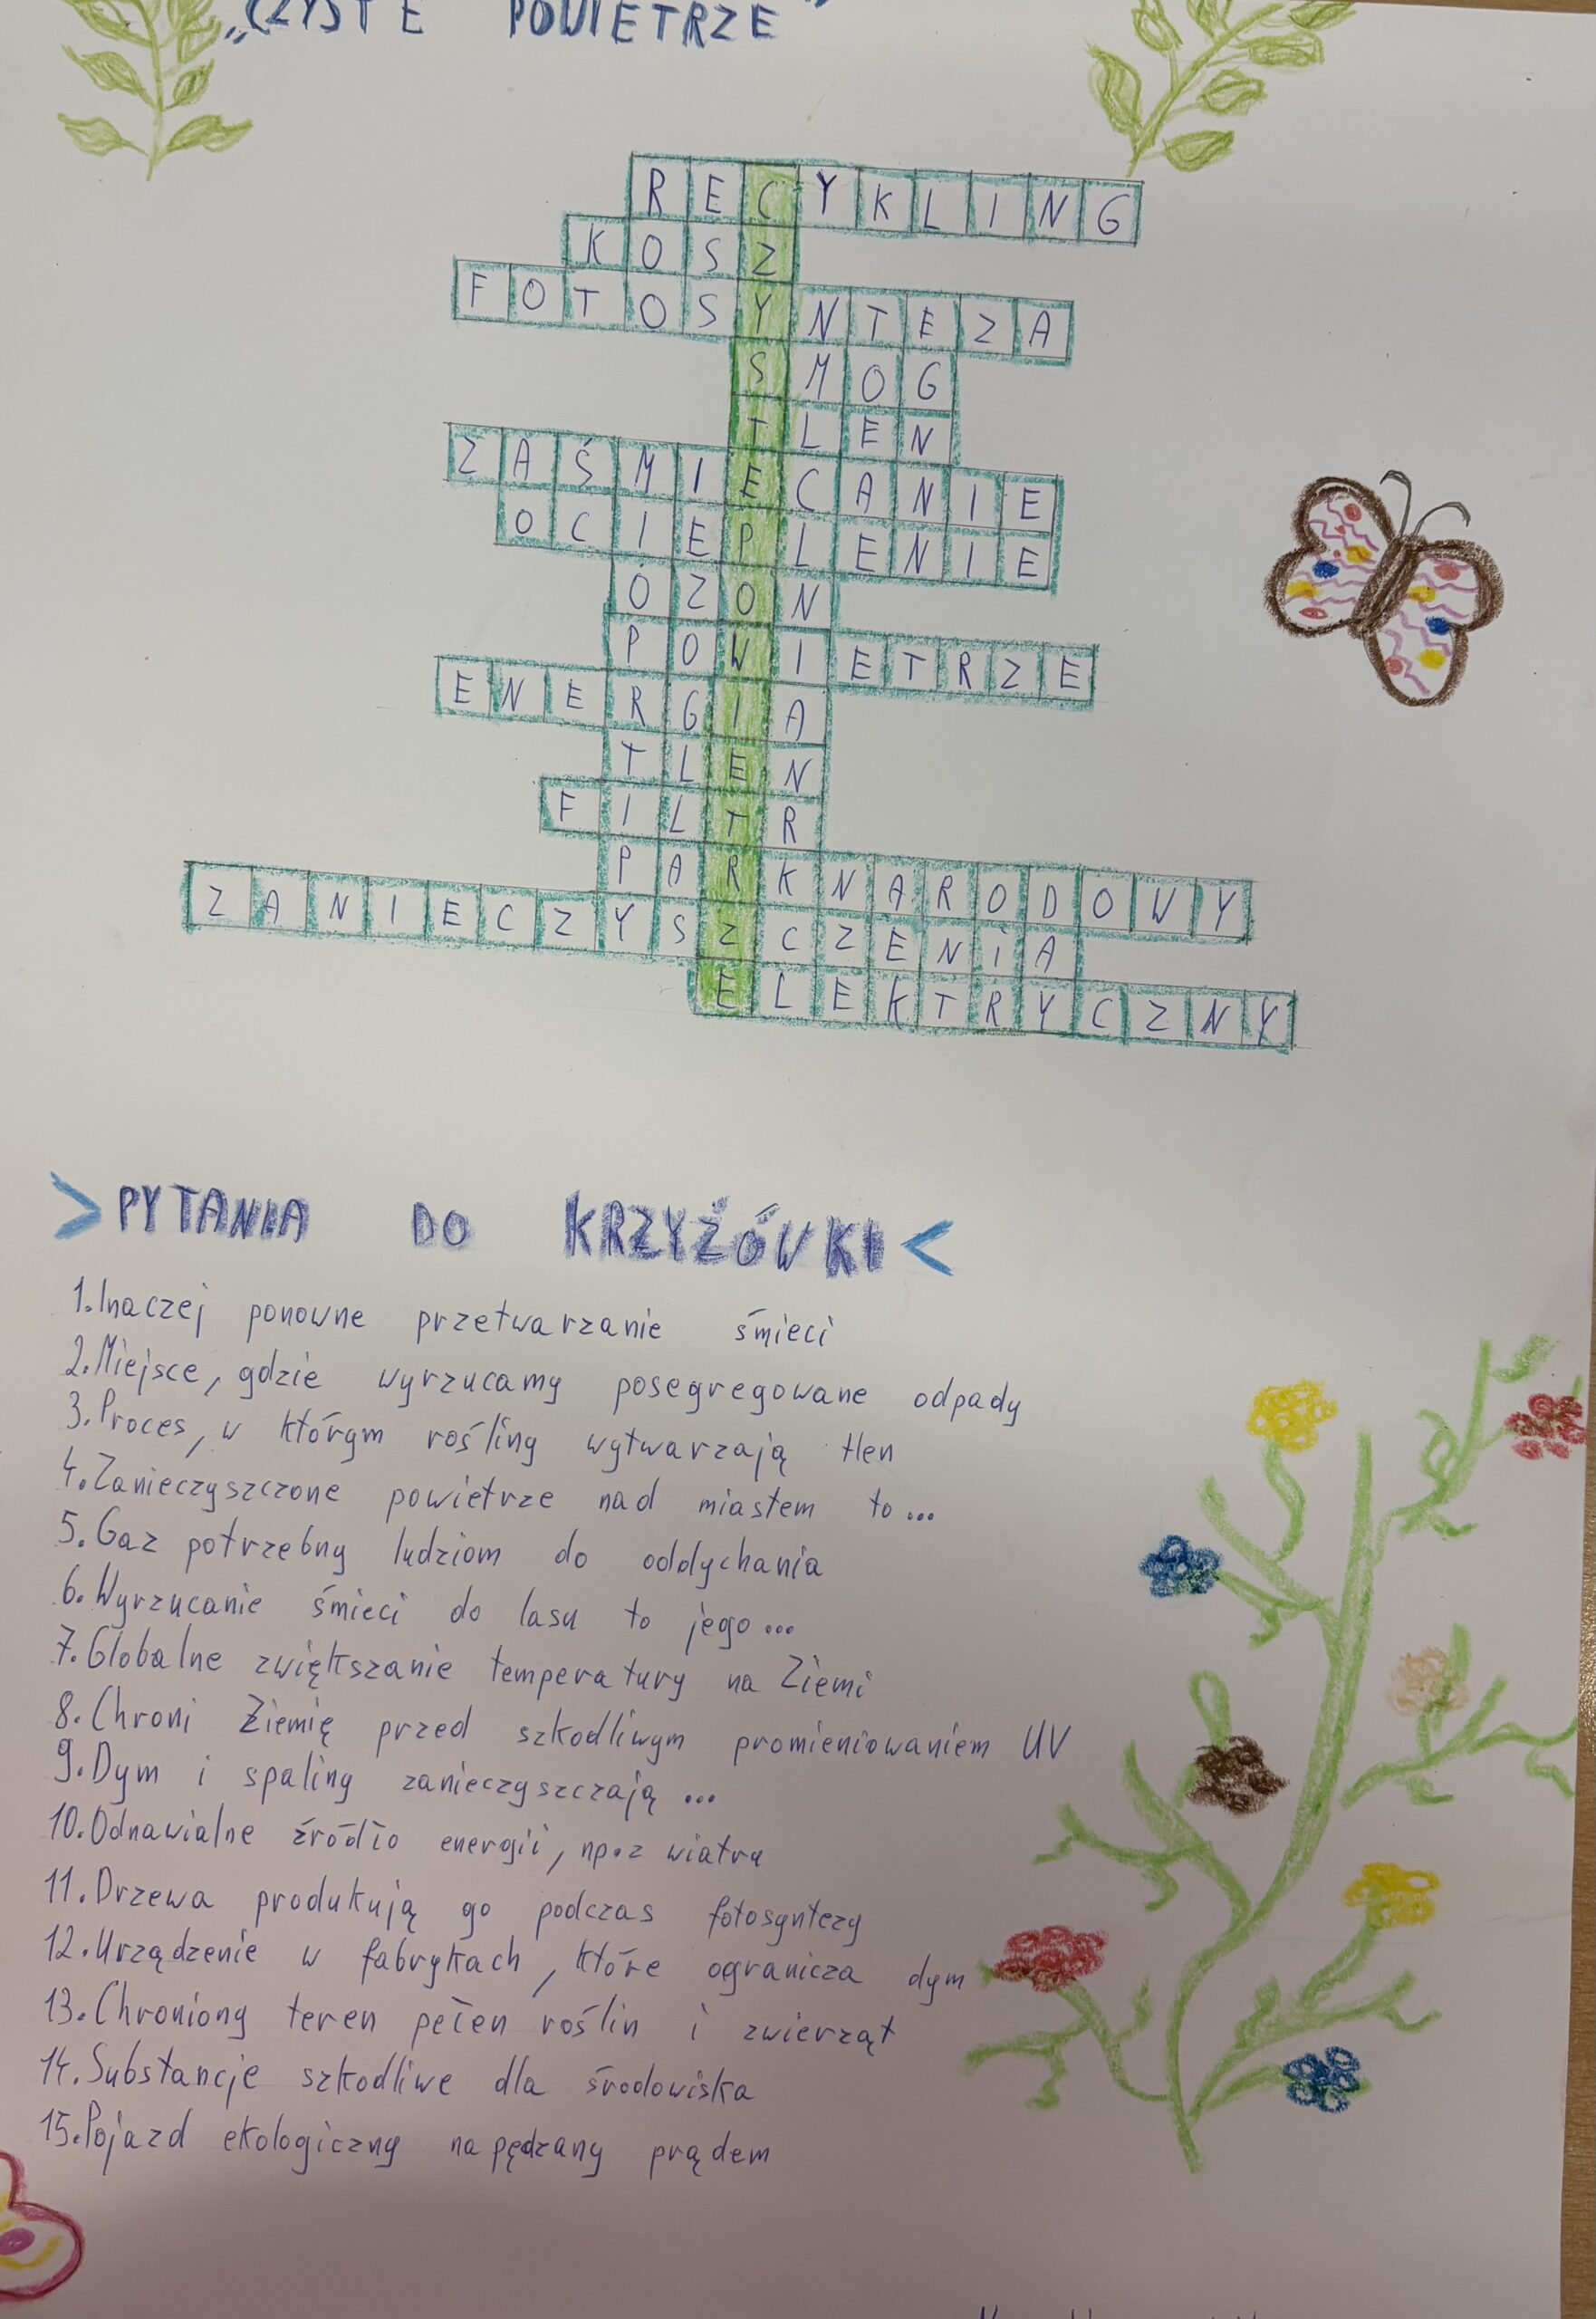 „CZYSTE POWIETRZE”
RECYKLING
KOSZ
FOTOSYNTEZA
SMOG
TLEN
ZAŚMIECANIE
OCIEPLENIE
OZON
POWIETRZE
ENERGIA
TLEN
FILTR
PARKNARODOWY
ZANIECZYSZCZENIA
ELEKTRYCZNY
>PYTANIA DO KRZYŻÓWKI<
1.Inaczej ponowne przetwarzanie śmieci
2.Miejsce, gdzie wyrzucamy posegregowane odpady
3.Proces, w którym rośliny wytwarzają tlen
4.Zanieczyszczone powietrze nad miastem to...
5.Gaz potrzebny ludziom do oddychania
6.Wyrzucanie śmieci do lasu to jego...
7.Globalne zwiększanie temperatury na Ziemi
8.Chroni Ziemię przed szkodliwym promieniowaniem UV
9.Dym i spaliny zanieczyszczają ...
10.Odnawialne źródło energii, np.z wiatru
11.Drzewa produkują go podczas fotosyntezy
12.Urządzenie w fabrykach, które ogranicza dym
13.Chroniony teren pełen roślin i zwierząt
14.Substancje szkodliwe dla środowiska
15.Pojazd ekologiczny napędzany prądem